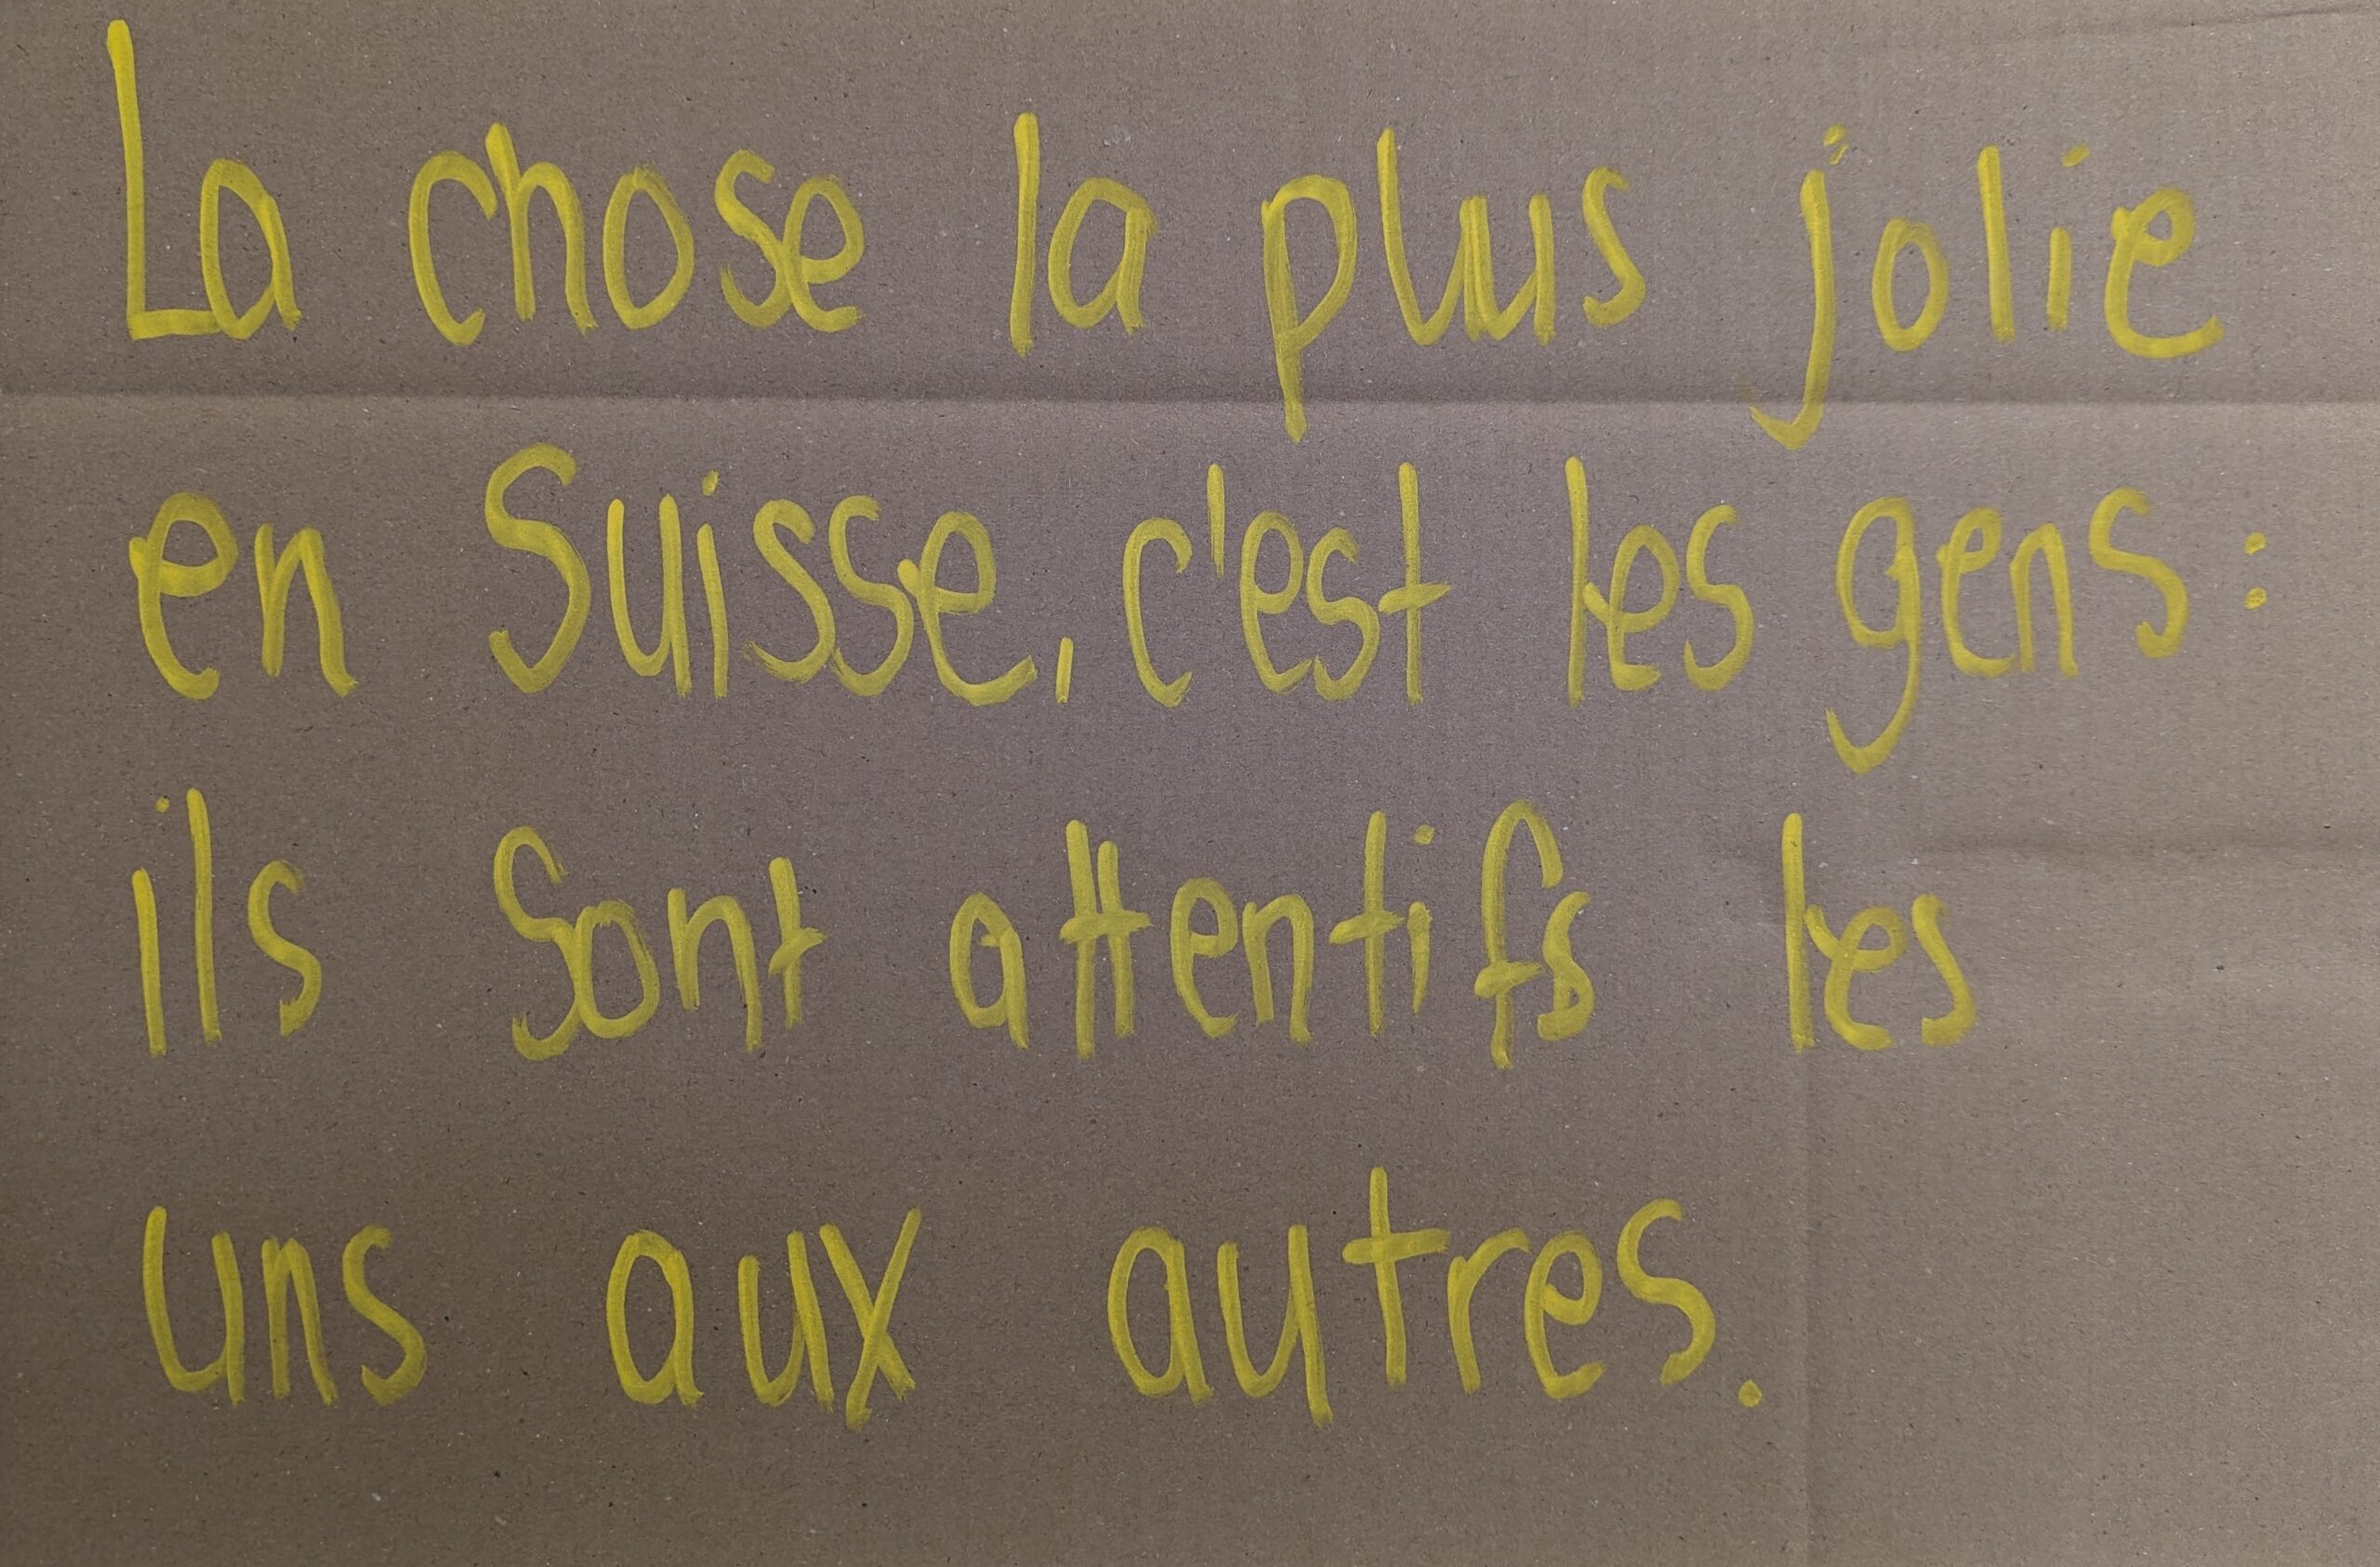 La chose la plus jolie
en Suisse, c'est les gens :
ils sont attentifs les
uns aux autres.